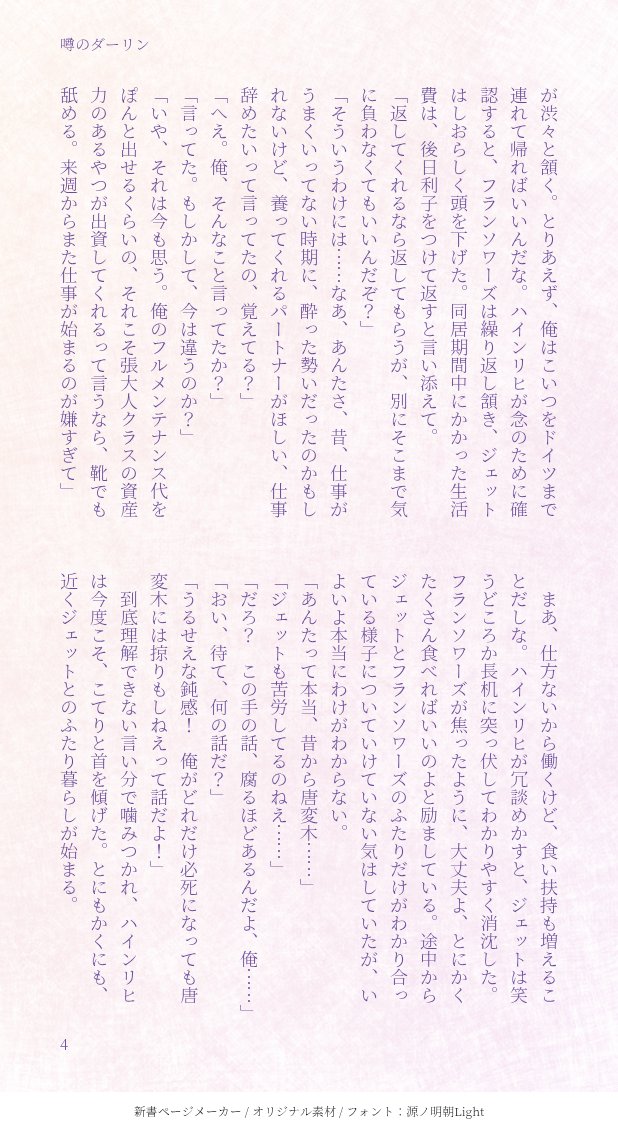 噂のダーリン
が渋々と頷く。とりあえず、俺はこいつをドイツまで
連れて帰ればいいんだな。ハインリヒが念のために確
認すると、フランソワーズは繰り返し頷き、ジェット
はしおらしく頭を下げた。同居期間中にかかった生活
費は、後日利子をつけて返すと言い添えて。
「返してくれるなら返してもらうが、別にそこまで気
に負わなくてもいいんだぞ？」
「そういうわけには……なあ、あんたさ、昔、仕事が
うまくいってない時期に、酔った勢いだったのかもし
れないけど、養ってくれるパートナーがほしい、仕事
辞めたいって言ってたの、覚えてる？」
「へえ。俺、そんなこと言ってたか？」
「言ってた。もしかして、今は違うのか？」
「いや、それは今も思う。俺のフルメンテナンス代を
ぽんと出せるくらいの、それこそ張大人クラスの資産
力のあるやつが出資してくれるって言うなら、靴でも
舐める。来週からまた仕事が始まるのが嫌すぎて」
まあ、仕方ないから働くけど、食い扶持も増えるこ
とだしな。ハインリヒが冗談めかすと、ジェットは笑
うどころか長机に突っ伏してわかりやすく消沈した。
フランソワーズが焦ったように、大丈夫よ、とにかく
たくさん食べればいいのよと励ましている。途中から
ジェットとフランソワーズのふたりだけがわかり合っ
ている様子についていけていない気はしていたが、い
よいよ本当にわけがわからない。
「あんたって本当、昔から唐変木……」
「ジェットも苦労してるのねえ……」
「だろ？　この手の話、腐るほどあるんだよ、俺……」
「おい、待て、何の話だ？」
「うるせえな鈍感！　俺がどれだけ必死になっても唐
変木には掠りもしねえって話だよ！」
到底理解できない言い分で噛みつかれ、ハインリヒ
は今度こそ、こてりと首を傾げた。とにもかくにも、
近くジェットとのふたり暮らしが始まる。
4
新書ページメーカー / オリジナル素材 / フォント：源ノ明朝Light